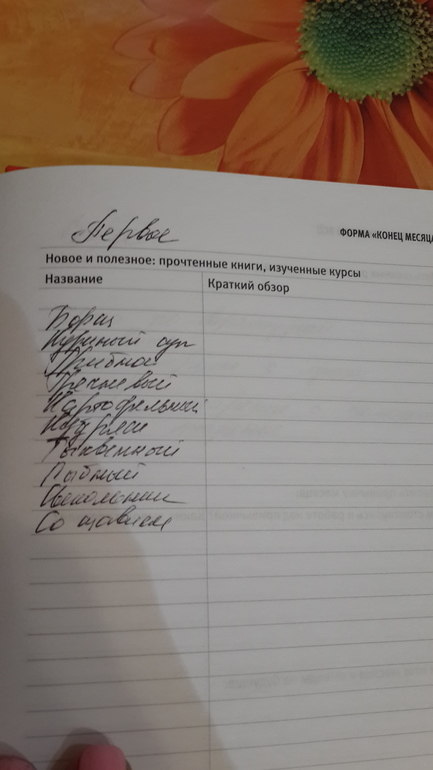 Первое
ФОРМА «КОНЕЦ МЕСЯЦА
Новое и полезное: прочтенные книги, изученные курсы
Название
Краткий обзор
Борщ
Куриный суп
Грибной
Гречневый
Картофельный
Тыквенный
Рыбный
Со щавелем